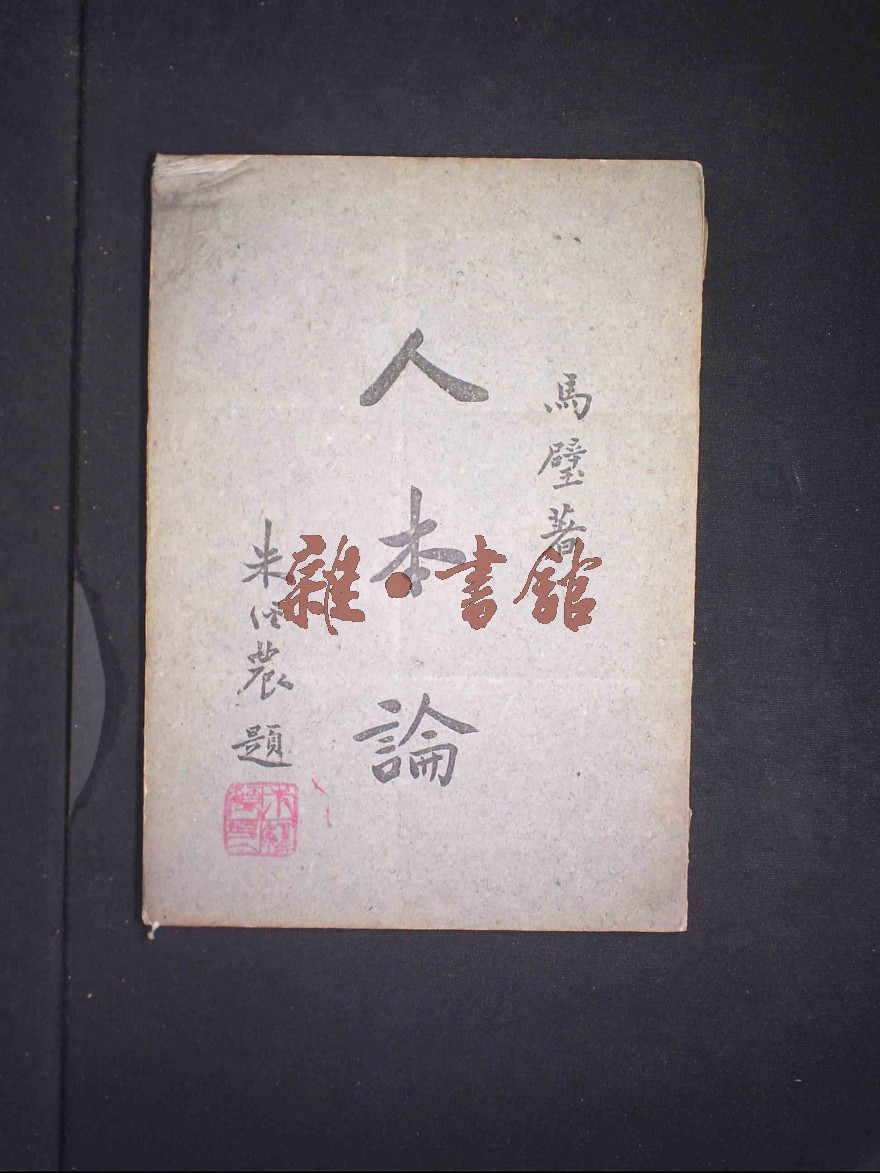 馬璧著
人本論
朱經農題
雜·書館